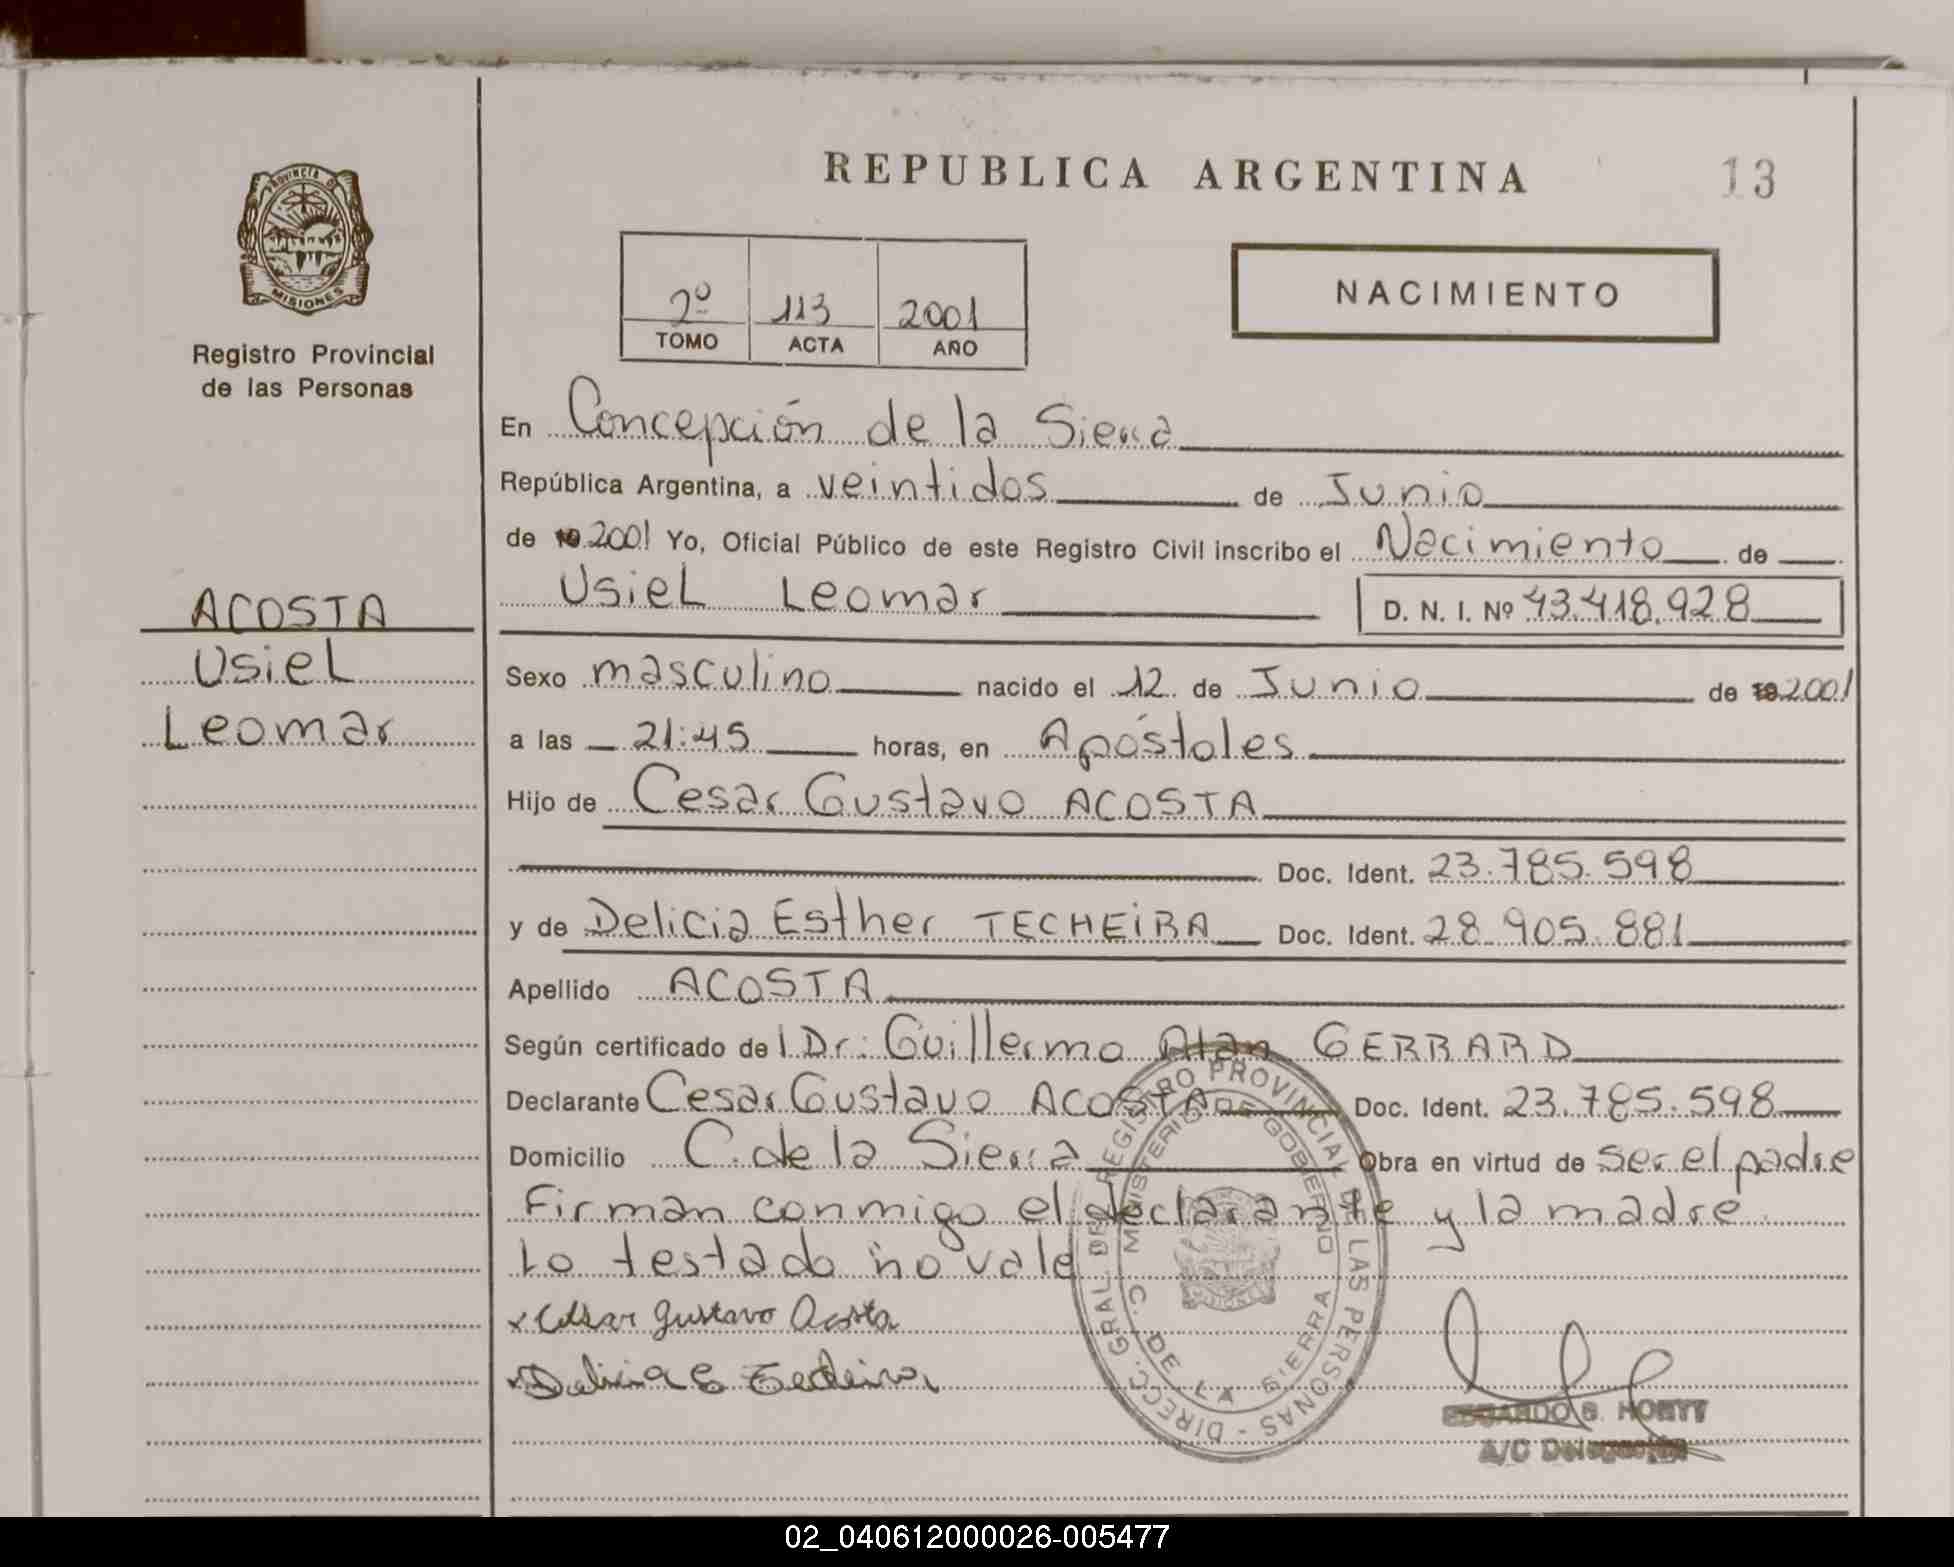 REPUBLICA ARGENTINA
13
PROVINCIA D
MISIONES
Registro Provincial
de las Personas
2º 113 2001
TOMO ACTA AÑO
NACIMIENTO
En Concepción de la Sierra
República Argentina, a veintidos de Junio
de 2001 Yo, Oficial Público de este Registro Civil inscribo el Nacimiento de
Usiel Leomar D. N. I. Nº 43.418.928
ACOSTA
Usiel
Leomar
Sexo masculino nacido el 12 de Junio de 2001
a las 21:45 horas, en Apóstoles
Hijo de Cesar Gustavo ACOSTA
Doc. Ident. 23.785.598
y de Delicia Esther TECHEiRA Doc. Ident. 28.905.881
Apellido ACOSTA
Según certificado de l Dr: Guillermo Alan GERRARD
Declarante Cesar Gustavo ACOSTA Doc. Ident. 23.785.598
Domicilio C. de la Sierra Obra en virtud de ser el padre
Firman conmigo el declarante y la madre.
Lo testado no vale
x Cesar Gustavo Acosta
x Delicia E Techeira
DIRECC. GRAL DEL REGISTRO PROVINCIAL DE LAS PERSONAS -
MINISTERIO DE GOBIERNO
C. DE LA SIERRA
EDUARDO B. HORYT
A/C Delegación
02_040612000026-005477